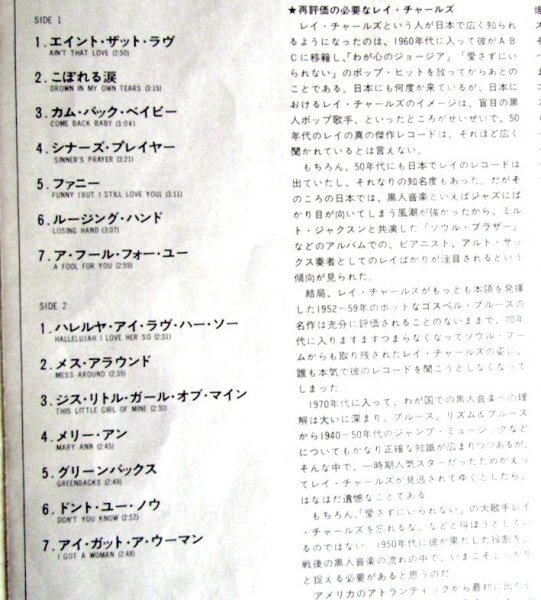 SIDE 1
1.エイント・ザット・ラヴ
AIN'T THAT LOVE (2:50)
2.こぼれる涙
DROWN IN MY OWN TEARS (3:15)
3.カム・バック・ベイビー
COME BACK BABY (3:04)
4.シナーズ・プレイヤー
SINNER'S PRAYER (3:21)
5.ファニー
FUNNY (BUT I STILL LOVE YOU) (3:11)
6.ルージング・ハンド
LOSING HAND (3:07)
7.ア・フール・フォー・ユー
A FOOL FOR YOU (2:59)
SIDE 2
1.ハレルヤ・アイ・ラヴ・ハー・ソー
HALLELUJAH I LOVE HER SO (2:31)
2.メス・アラウンド
MESS AROUND (2:39)
3.ジス・リトル・ガール・オブ・マイン
THIS LITTLE GIRL OF MINE (2:30)
4.メリー・アン
MARY ANN (2:45)
5.グリーンバックス
GREENBACKS (2:49)
6.ドント・ユー・ノウ
DON'T YOU KNOW (2:52)
7.アイ・ガット・ア・ウーマン
I GOT A WOMAN (2:48)
★再評価の必要なレイ・チャールズ
レイ・チャールズという人が日本で広く知られ
るようになったのは、1960年代に入って彼がAB
Cに移籍し、「わが心のジョージア」「愛さずにい
られない」のポップ・ヒットを放ってからあとの
ことである。日本にも何度か来ているが、日本に
おけるレイ・チャールズのイメージは、盲目の黒
人ポップ歌手、といったところがせいぜいで、50
年代のレイの真の傑作レコードは、それほど広く
聞かれているとは言えない。
もちろん、50年代にも日本でレイのレコードは
出ていたし、それなりの知名度もあった。だがそ
のころの日本では、黒人音楽といえばジャズにば
かり目が向いてしまう風潮が強かったから、ミル
ト・ジャクスンと共演した「ソウル・ブラザー」
などのアルバムでの、ピアニスト、アルト・サッ
クス奏者としてのレイばかりが注目されるという
傾向が見られた。
結局、レイ・チャールズがもっとも本領を発揮
した1952〜59年のホットなゴスペル・ブルースの
名作は充分に評価されることのないままで、70年
代に入りますますつまらなくなってソウル・ブー
ムからも取り残されたレイ・チャールズの姿に、
誰も本気で彼のレコードを聞こうとしなくなって
しまった。
1970年代に入って、わが国での黒人音楽への理
解は大いに深まり、ブルース、リズム&ブルース
から1940〜50年代のジャンプ・ミュージックなど
についてもかなり正確な知識が広まりつつあるが、
そんな中で、一時期人気スターだったためかえっ
てレイ・チャールズが見逃されてゆくとしたら、
はなはだ遺憾なことである。
もちろん、「愛さずにいられない」の大歌手レイ
・チャールズを忘れるな、などと叫ぼうとしてい
るのではない。1950年代に彼が果たした役割を、
戦後の黒人音楽の流れの中で、いまこそしっかり
と捉える必要があると思うのだ。
アメリカのアトランティックから最初に出た